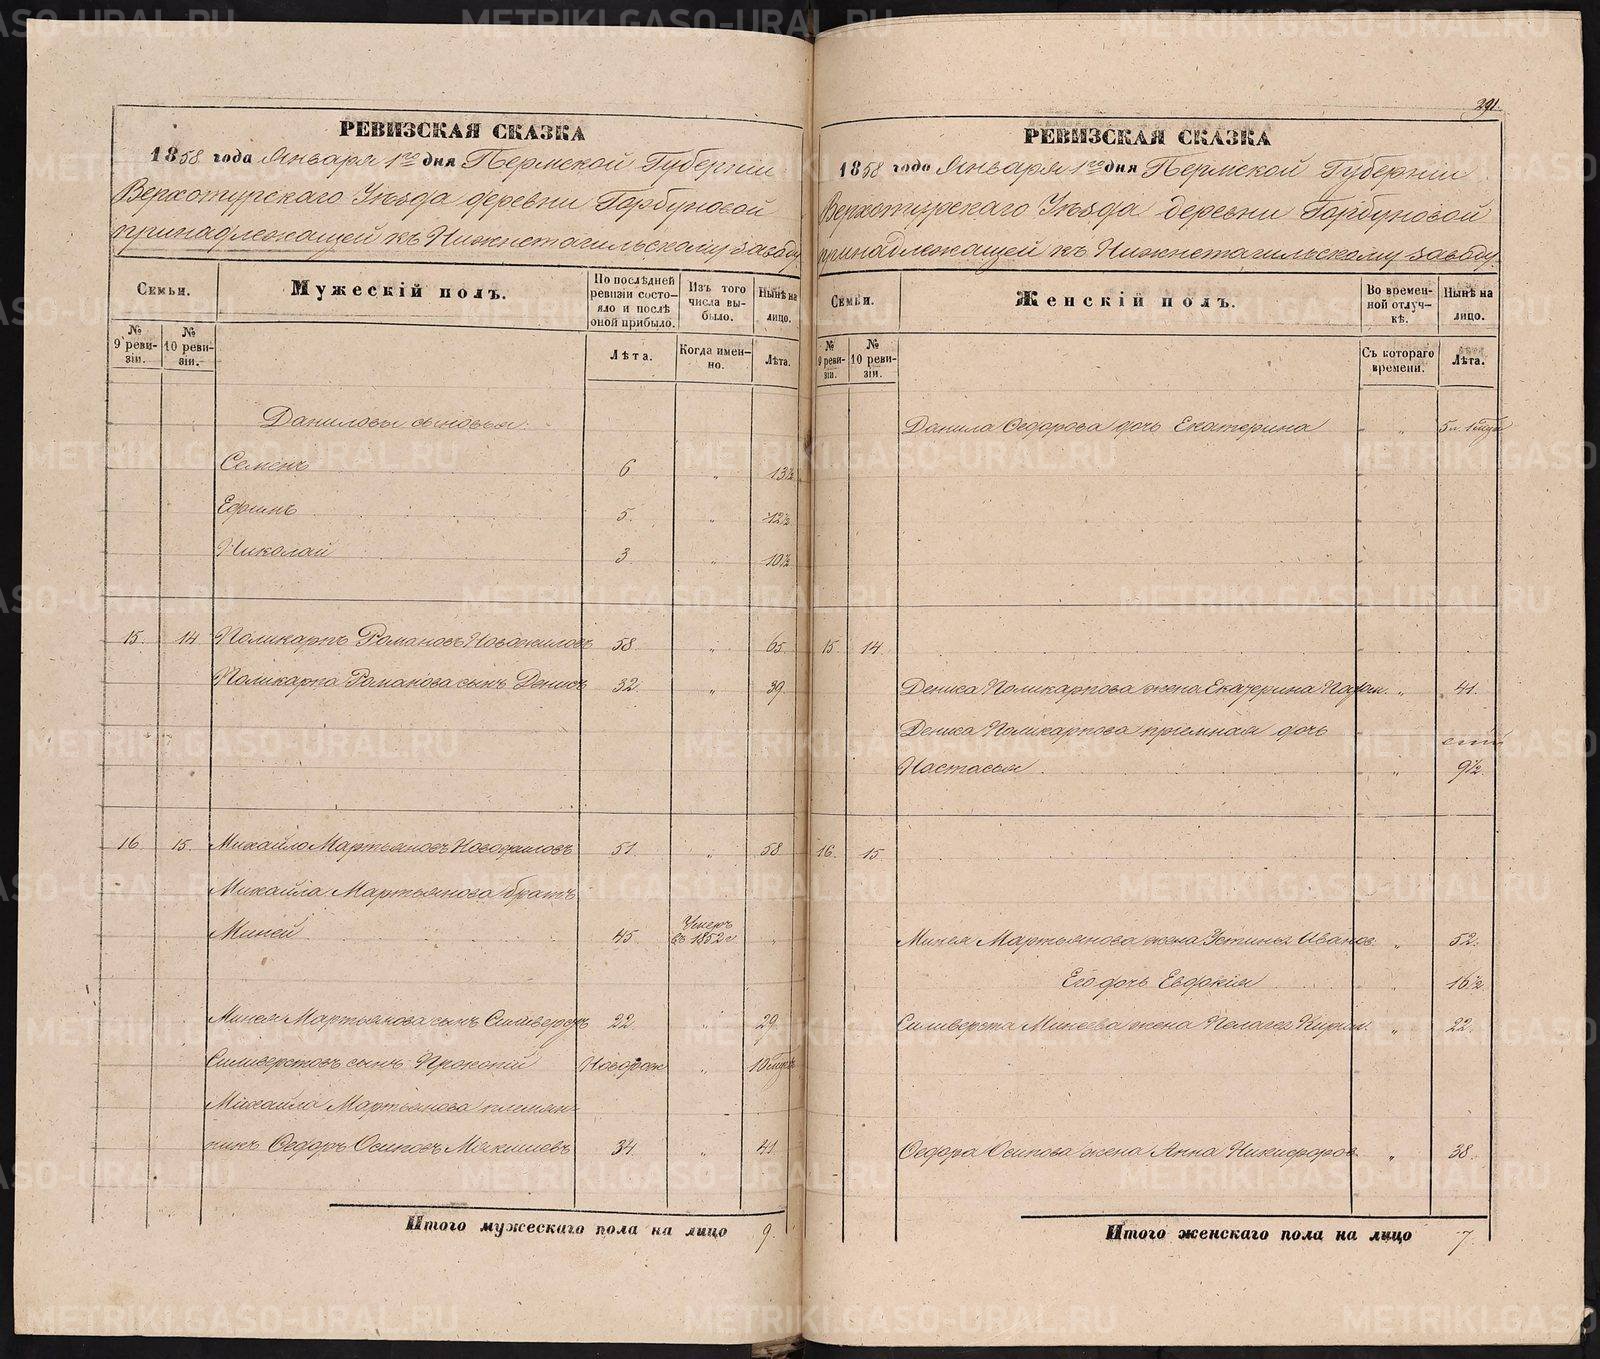 291.
РЕВИЗСКАЯ СКАЗКА
1858 года Января 1го дня Пермской Губерніи
Верхотурскаго Уѣзда деревни Горбуновой
принадлежащей къ Нижнетагильскому заводу
Семьи.
Мужескій полъ.
По послѣдней ревизіи состояло и послѣ оной прибыло.
Изъ того числа выбыло.
Нынѣ на лицо.
№ 9 ревизіи.
№ 10 ревизіи.
Лѣта.
Когда именно.
Лѣта.
Даниловы сыновья:
Семенъ 6 „ 13½
Ефимъ 5. „ 12½
Николай 3 „ 10½
15. 14 Поликарпъ Романовъ Новожиловъ 58 „ 65.
Поликарпа Романова сынъ Денисъ 32. „ 39
16 15. Михайло Мартьяновъ Новожиловъ 51. „ 58
Михайла Мартьянова братъ
Миней 45. Умеръ въ 1852 г „
Минея Мартьянова сынъ Силиверстъ 22. „ 29.
Силиверстовъ сынъ Прокопій Новорож „
Михайла Мартьянова племян-
никъ Федоръ Осиповъ Мякишевъ 34. „ 41.
Итого мужескаго пола на лицо 9.
РЕВИЗСКАЯ СКАЗКА
1858 года Января 1го дня Пермской Губерніи
Верхотурскаго Уѣзда деревни Горбуновой
принадлежащей къ Нижнетагильскому заводу.
Семьи.
Женскій полъ.
Во временной отлучкѣ.
Нынѣ на лицо.
№ 9 ревизіи.
№ 10 ревизіи.
Съ котораго времени.
Лѣта.
Данила Федорова дочь Екатерина „
15 14.
Дениса Поликарпова жена Екатерина „ 41.
Дениса Поликарпова пріемная дочь
Настасья „ 9½.
16. 15.
Минея Мартьянова жена Устинья Иванов. „ 52.
Его дочь Евдокія „ 16½
Силиверста Минеева жена Пелагея Кирил. „ 22.
Федора Осипова жена Анна Никифоров. „ 38.
Итого женскаго пола на лицо 7.
METRIKI.GASO-URAL.RU